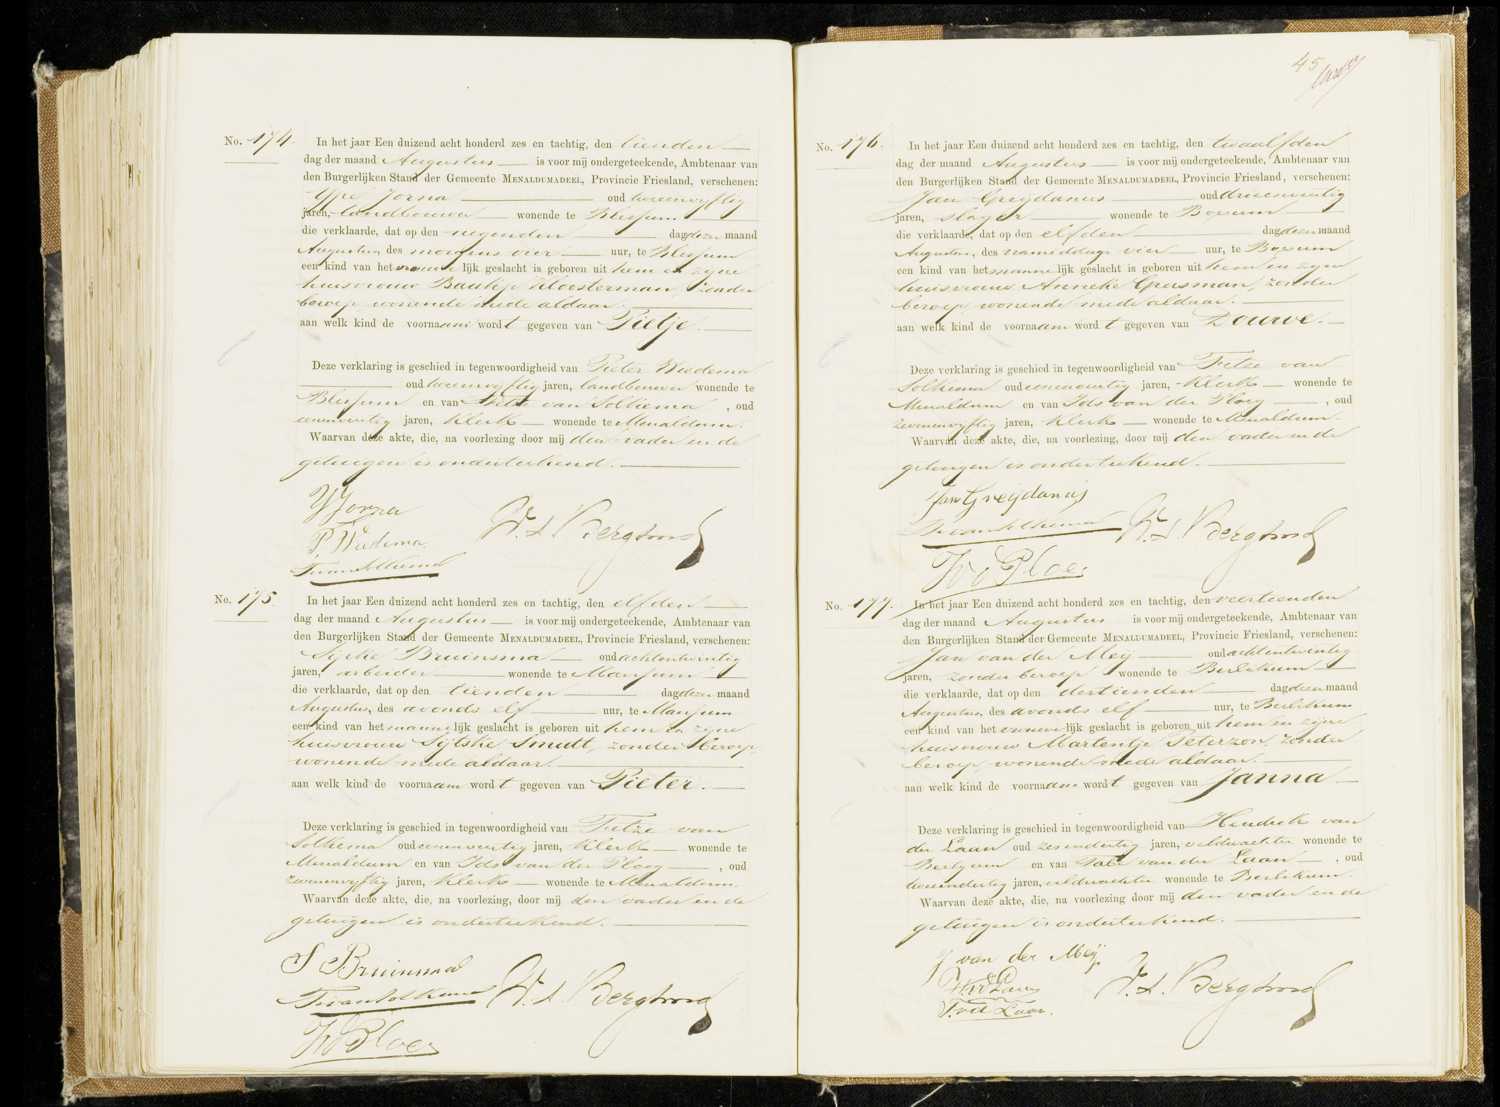 No. 174. In het jaar Een duizend acht honderd zes en tachtig, den tienden
dag der maand Augustus is voor mij ondergeteekende, Ambtenaar van
den Burgerlijken Stand der Gemeente MENALDUMADEEL, Provincie Friesland, verschenen:
Ypre Jorna oud tweeenvyftig
jaren, landbouwer wonende te Blessum
die verklaarde, dat op den negenden dag dezer maand
Augustus, des morgens vier uur, te Blessum
een kind van het vrouwelijk geslacht is geboren uit hem en zijne
huisvrouw Baukje Kloosterman, zonder
beroep wonende mede aldaar.
aan welk kind de voornaam wordt gegeven van Pietje.
Deze verklaring is geschied in tegenwoordigheid van Pieter Wiedema
oud tweeenvyftig jaren, landbouwer wonende te
Blessum en van Tietze van Solkema, oud
eenenveertig jaren, Klerk wonende te Menaldum.
Waarvan deze akte, die, na voorlezing door mij den vader en de
getuigen is onderteekend.
Y Jorna
P. Wiedema
T van Solkema
No. 175. In het jaar Een duizend acht honderd zes en tachtig, den elfden
dag der maand Augustus is voor mij ondergeteekende, Ambtenaar van
den Burgerlijken Stand der Gemeente MENALDUMADEEL, Provincie Friesland, verschenen:
Sijtke Bruinsma oud achtentwintig
jaren, arbeider wonende te Marssum
die verklaarde, dat op den tienden dag dezer maand
Augustus, des avonds elf uur, te Marssum
een kind van het mannelijk geslacht is geboren uit hem en zijne
huisvrouw Sijtske Smidt, zonder beroep
wonende mede aldaar.
aan welk kind de voornaam wordt gegeven van Pieter.
Deze verklaring is geschied in tegenwoordigheid van Tietze van
Solkema oud eenenveertig jaren, Klerk wonende te
Menaldum en van Ids van der Ploeg, oud
zevenenvyftig jaren, Klerk wonende te Menaldum.
Waarvan deze akte, die, na voorlezing, door mij den vader en de
getuigen is onderteekend.
S Bruinsma
T van Solkema
45
No. 176. In het jaar Een duizend acht honderd zes en tachtig, den twaalfden
dag der maand Augustus is voor mij ondergeteekende, Ambtenaar van
den Burgerlijken Stand der Gemeente MENALDUMADEEL, Provincie Friesland, verschenen:
Jan Greijdanus oud drieenveertig
jaren, slager wonende te Boxum
die verklaarde, dat op den elfden dag dezer maand
Augustus, des namiddags vier uur, te Boxum
een kind van het mannelijk geslacht is geboren uit hem en zijne
huisvrouw Anneke Grasman, zonder
beroep wonende mede aldaar.
aan welk kind de voornaam wordt gegeven van Douwe.
Deze verklaring is geschied in tegenwoordigheid van Tietze van
Solkema oud eenenveertig jaren, Klerk wonende te
Menaldum en van Ids van der Ploeg, oud
zevenenvyftig jaren, Klerk wonende te Menaldum.
Waarvan deze akte, die, na voorlezing, door mij den vader en de
getuigen is onderteekend.
Jan Greijdanus
T van Solkema
No. 177. In het jaar Een duizend acht honderd zes en tachtig, den veertienden
dag der maand Augustus is voor mij ondergeteekende, Ambtenaar van
den Burgerlijken Stand der Gemeente MENALDUMADEEL, Provincie Friesland, verschenen:
Jan van der Meij oud achtentwintig
jaren, zonder beroep wonende te Berlikum
die verklaarde, dat op den dertienden dag dezer maand
Augustus, des avonds elf uur, te Berlikum
een kind van het vrouwelijk geslacht is geboren uit hem en zijne
huisvrouw Martentje Peterzon, zonder
beroep, wonende mede aldaar.
aan welk kind de voornaam wordt gegeven van Janna
Deze verklaring is geschied in tegenwoordigheid van Hendrik van
der Laan oud zesendertig jaren, veldwachter wonende te
en van van der Laan, oud
tweeendertig jaren, veldwachter wonende te Berlikum.
Waarvan deze akte, die, na voorlezing, door mij den vader en de
getuigen is onderteekend.
J van der Meij
H v d Laan
T. v d Laan.